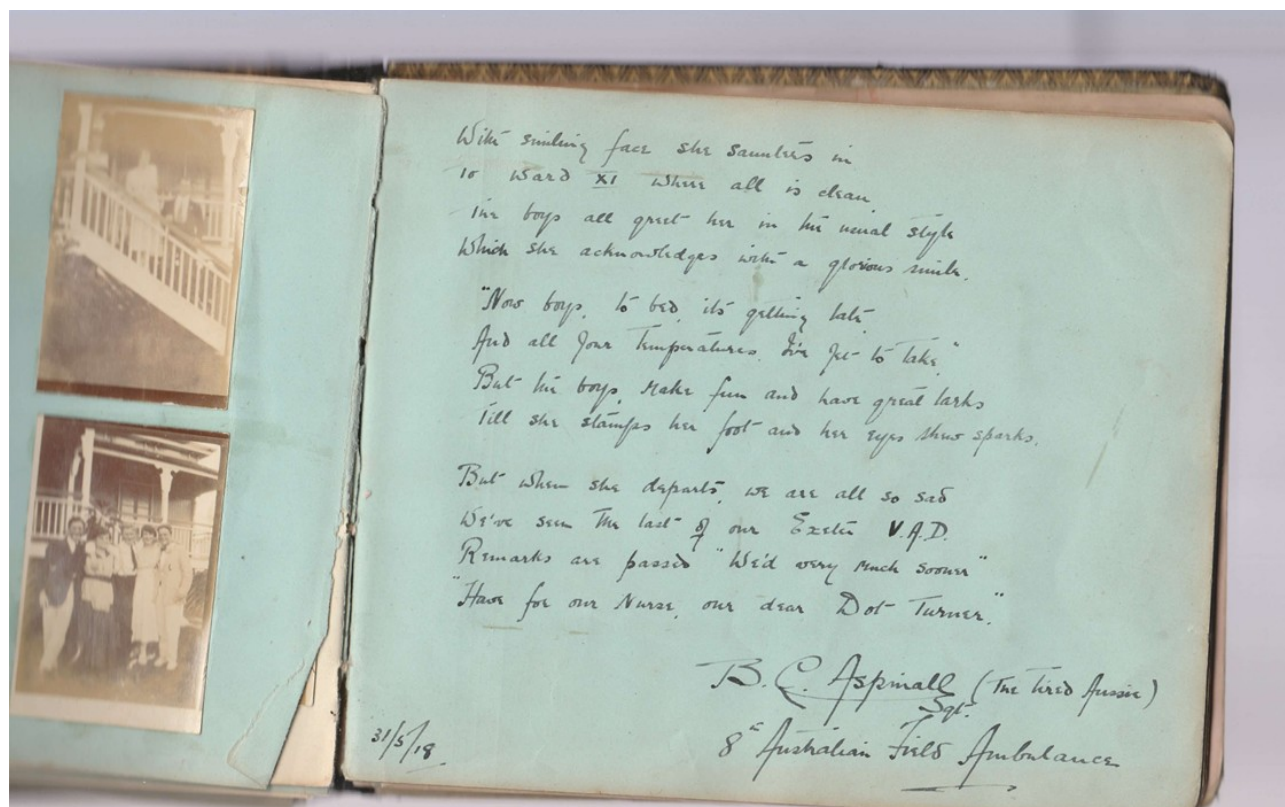 With smiling face she saunters in
To Ward XI where all is clean.
The boys all greet her in the usual style
Which she acknowledges with a glorious smile.
"Now boys, to bed, its getting late,
And all your Temperatures, I've yet to take"
But the boys, make fun and have great larks
Till she stamps her foot and her eyes show sparks.
But when she departs, we are all so sad
We've seen the last of our Exeter V.A.D.
Remarks are passed "We'd very much sooner"
"Have for our Nurse, our dear Dot Turner."
B. C. Aspinall (The Tired Aussie)
Sgt.
8th Australian Field Ambulance
31/5/18.